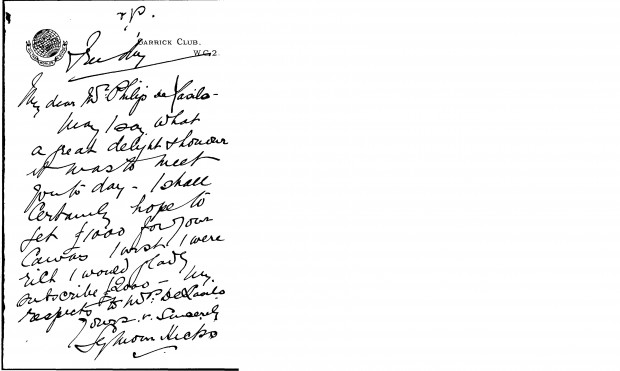 GARRICK CLUB.
W.C.2.
My dear Mr Philip de Laszlo -
May I say what
a great delight & honour
it was to meet
you to day - I shall
certainly hope to
get £1000 for your
I wish I were
rich I would gladly
subscribe £2000 - My
respects to Mrs De Laszlo
Yours v. Sincerely
Seymour Hicks